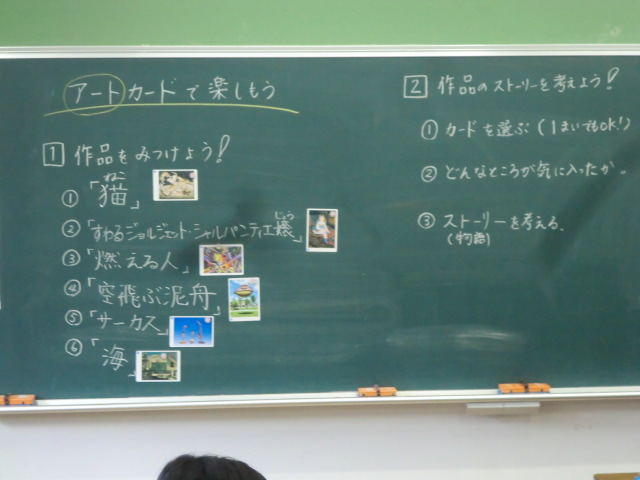 アートカードで楽しもう
1 作品をみつけよう!
ねこ
①「猫」
じょう
②「すわるジョルジェット・シャルパンティエ嬢」
③「燃える人」
④「空飛ぶ泥舟」
⑤「サーカス」
⑥「海」
2 作品のストーリーを考えよう!
① カードを選ぶ(1まいでもOK!)
② どんなところが気に入ったか。
③ ストーリーを考える。
(物語)